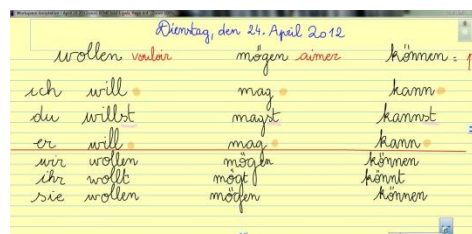 Dienstag, den 24. April 2012
wollen vouloir mögen aimer können =
ich will mag kann
du willst magst kannst
er will mag kann
wir wollen mögen können
ihr wollt mögt könnt
sie wollen mögen können